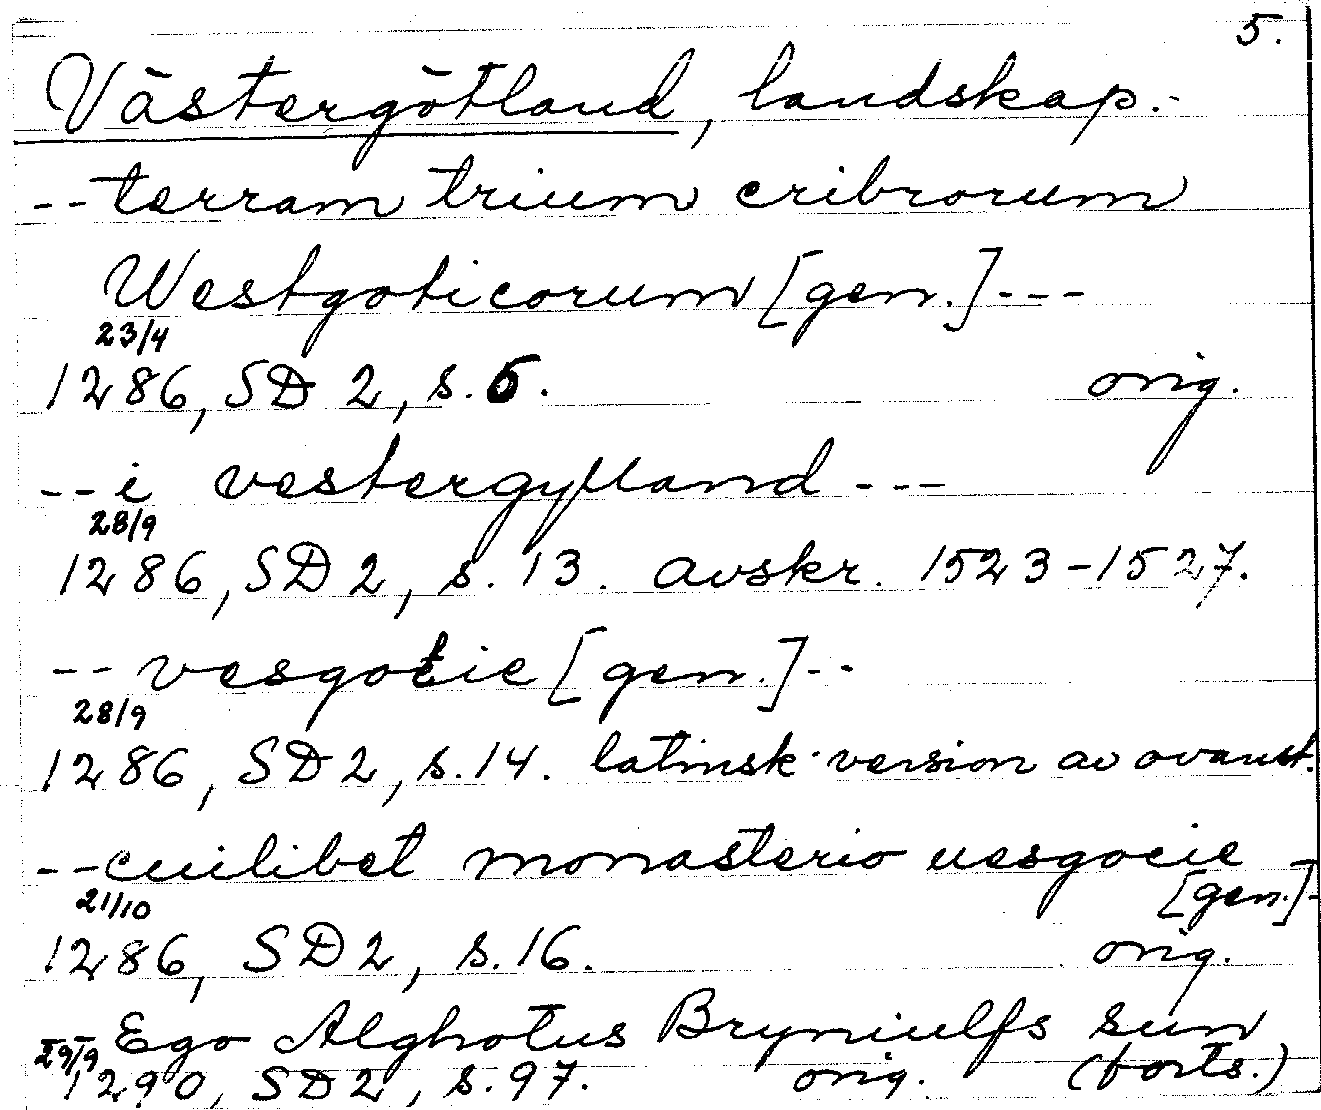 5.
Västergötland, landskap.-
--terram trium cribrorum
Westgoticorum [gen.]---
23/4
1286, SD 2, s. 6. orig.
--i vestergylland---
28/9
1286, SD 2, s. 13. avskr. 1523-1527.
--vesgotie [gen.]--
28/9
1286, SD 2, s. 14. latinsk version av ovanst.
--cuilibet monasterio uesgocie -
[gen.]-
21/10
1286, SD 2, s. 16. orig.
--Ego Alghotus Bryniulfs sun
29/9
1290, SD 2, s. 97. orig. (forts.)